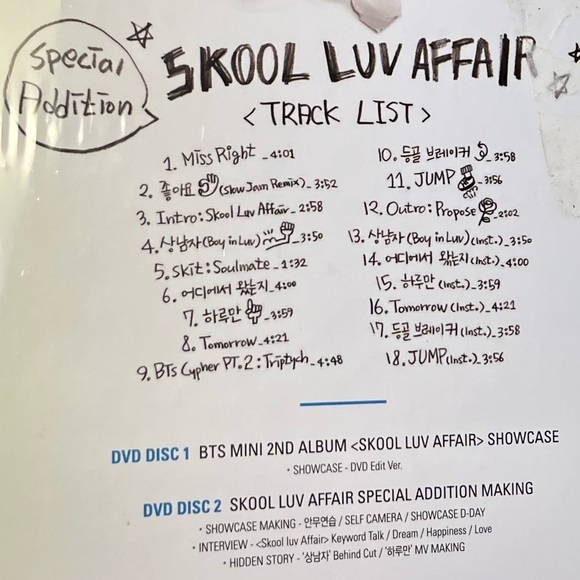 Special
Addition
SKOOL LUV AFFAIR
<TRACK LIST>
1. Miss Right _4:01
2. 좋아요 (Slow Jam Remix)_3:52
3. Intro: Skool Luv Affair_2:58
4. 상남자(Boy in Luv)_3:50
5. Skit: Soulmate_1:32
6. 어디에서 왔는지_4:00
7. 하루만_3:59
8. Tomorrow_4:21
9. BTS Cypher PT.2: Triptych_4:48
10. 등골 브레이커_3:58
11. JUMP_3:56
12. Outro: Propose_2:02
13. 상남자(Boy in Luv)(Inst.)_3:50
14. 어디에서 왔는지(Inst.)_4:00
15. 하루만 (Inst.)_3:59
16. Tomorrow(Inst.)_4:21
17. 등골 브레이커(Inst.)_3:58
18. JUMP(Inst.)_3:56
DVD DISC 1 BTS MINI 2ND ALBUM <SKOOL LUV AFFAIR> SHOWCASE
• SHOWCASE - DVD Edit Ver.
DVD DISC 2 SKOOL LUV AFFAIR SPECIAL ADDITION MAKING
• SHOWCASE MAKING - 안무연습 / SELF CAMERA / SHOWCASE D-DAY
• INTERVIEW - <Skool luv Affair> Keyword Talk / Dream / Happiness / Love
• HIDDEN STORY - '상남자' Behind Cut / '하루만' MV MAKING